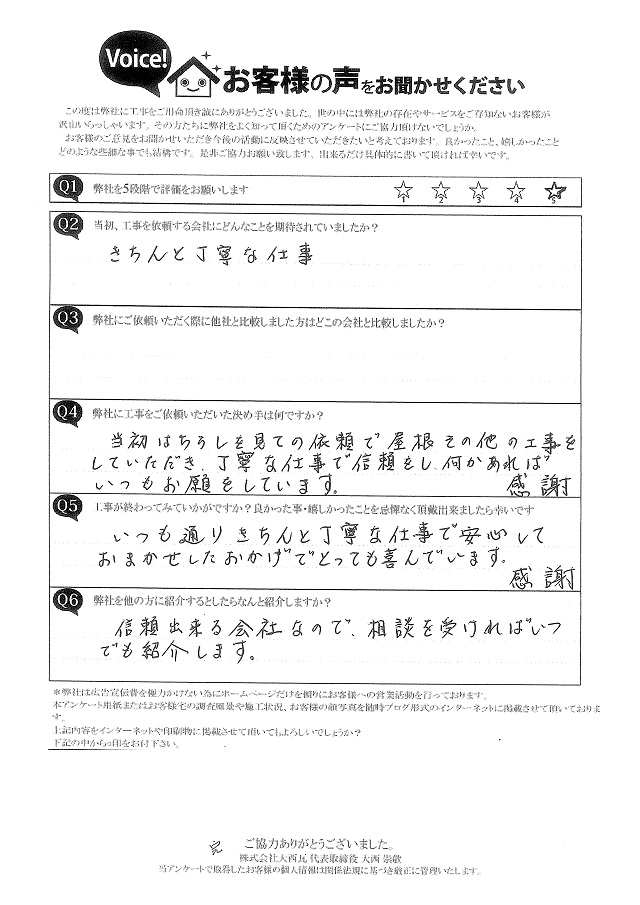 Voice!
お客様の声をお聞かせください
この度は弊社に工事をご用命頂き誠にありがとうございました。世の中には弊社の存在やサービスをご存知ないお客様が
沢山いらっしゃいます。その方たちに弊社をよく知って頂くためのアンケートにご協力頂けないでしょうか。
お客様のご意見をお聞かせいただき今後の活動に反映させていただきたいと考えております。良かったこと、嬉しかったこと
どのような些細な事でも結構です。是非ご協力お願い致します。出来るだけ具体的に書いて頂ければ幸いです。
Q1 弊社を5段階で評価をお願いします
1 2 3 4 5
Q2 当初、工事を依頼する会社にどんなことを期待されていましたか？
きちんと丁寧な仕事
Q3 弊社にご依頼いただく際に他社と比較しました方はどこの会社と比較しましたか？
Q4 弊社に工事をご依頼いただいた決め手は何ですか？
当初はちらしを見ての依頼で屋根その他の工事を
していただき、丁寧な仕事で信頼をし、何かあれば
いつもお願をしています。 感謝
Q5 工事が終わってみていかがですか？良かった事・嬉しかったことを忌憚なく頂戴出来ましたら幸いです
いつも通りきちんと丁寧な仕事で安心して
おまかせしたおかげでとっても喜んでいます。
感謝
Q6 弊社を他の方に紹介するとしたらなんと紹介しますか？
信頼出来る会社なので、相談を受ければいつ
でも紹介します。
＊弊社は広告宣伝費を極力かけない為にホームページだけを頼りにお客様への営業活動を行っております。
本アンケート用紙またはお客様宅の調査風景や施工状況、お客様の顔写真を随時ブログ形式のインターネットに掲載させて頂いておりま
す。
上記内容をインターネットや印刷物に掲載させて頂いてもよろしいでしょうか？
下記の中から○印をお付下さい。
ご協力ありがとうございました。
株式会社大西瓦 代表取締役 大西 崇敬
当アンケートで取得したお客様の個人情報は関係法規に基づき厳正に管理いたします。